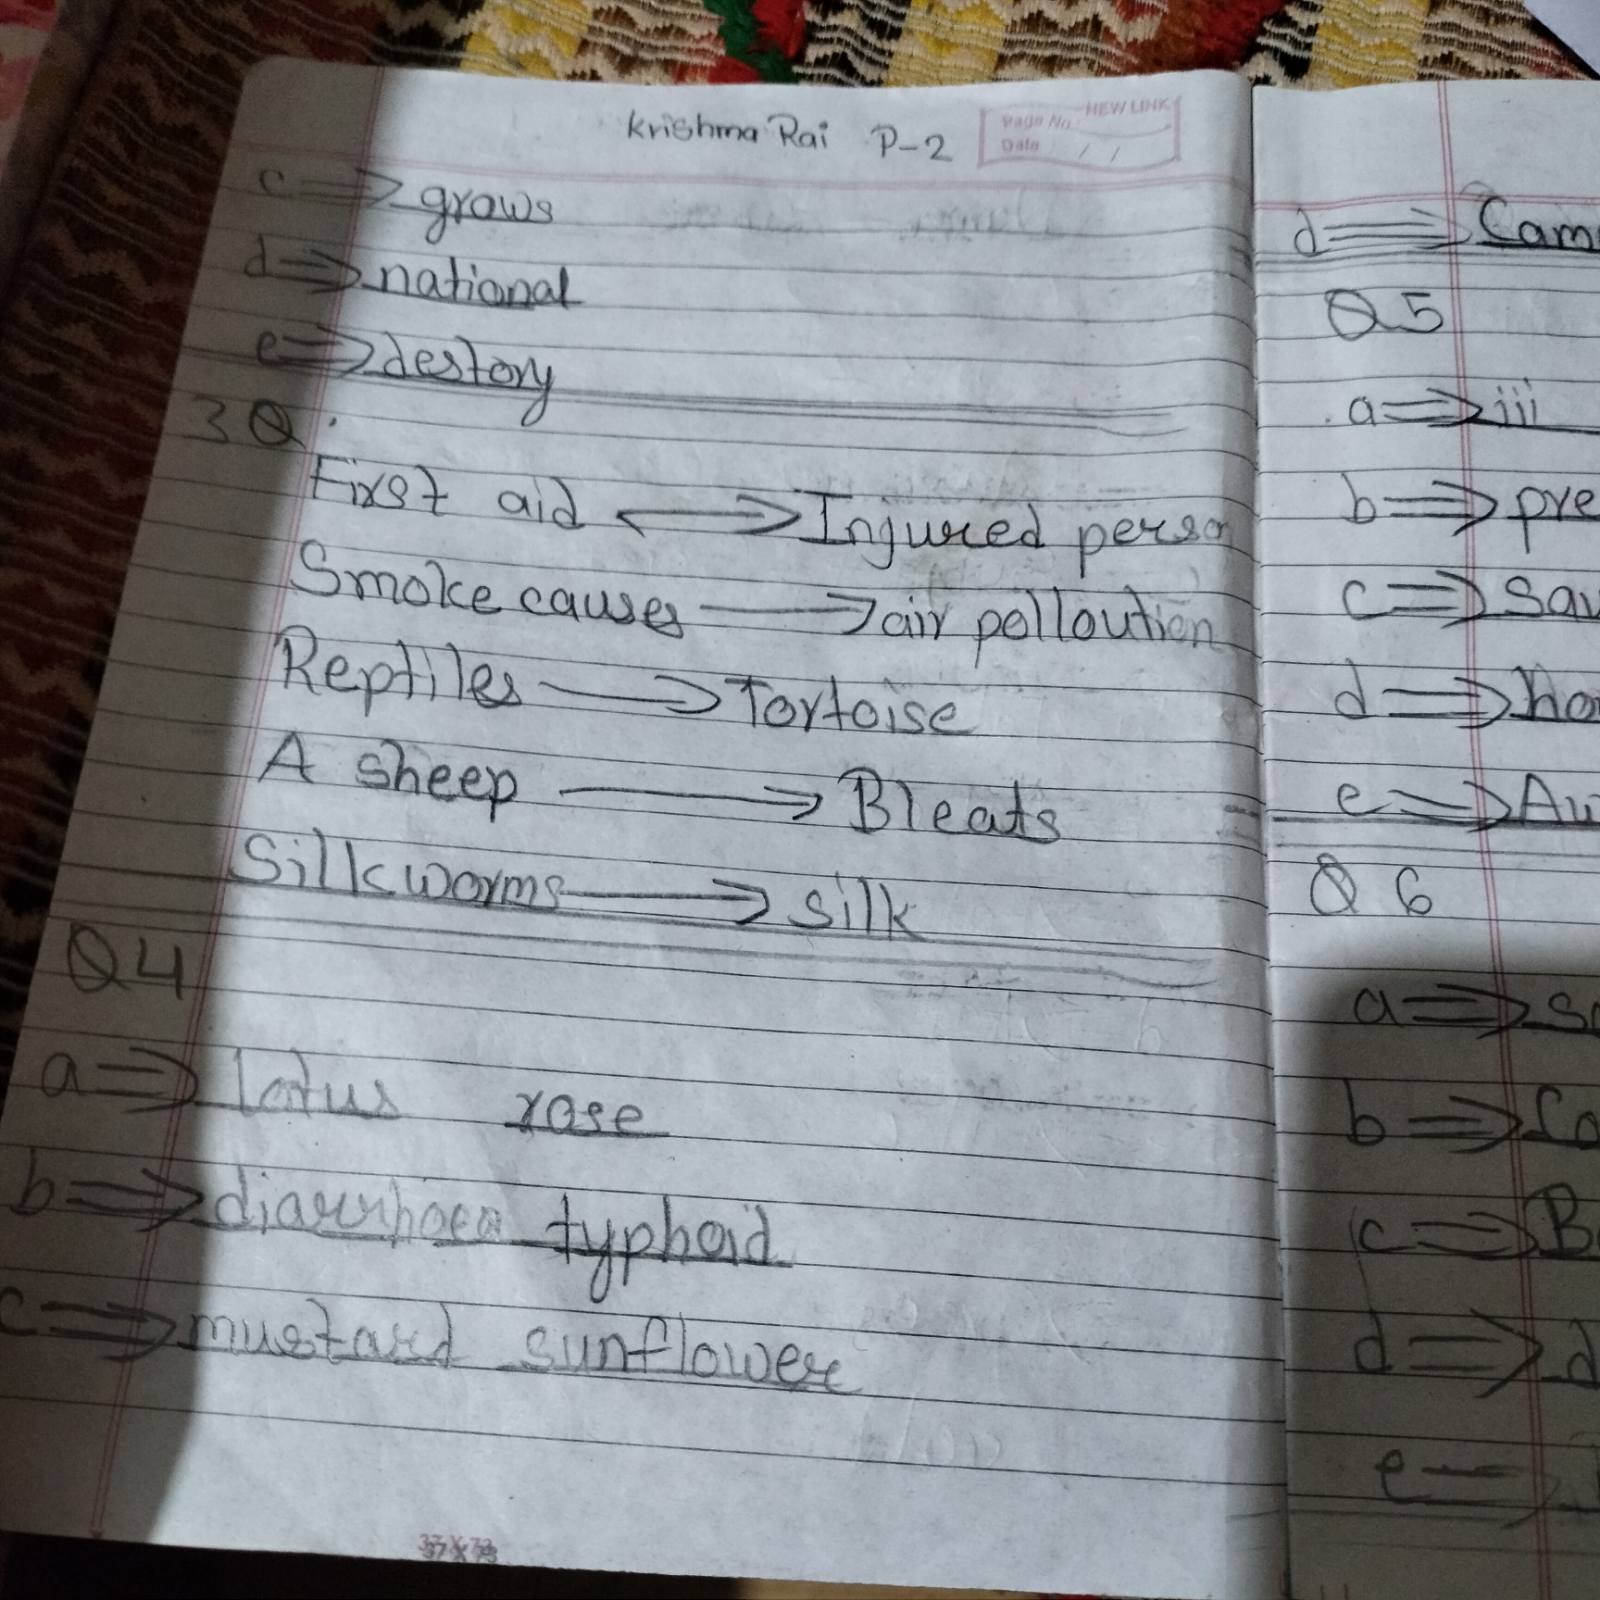 Krishma Rai P-2
NEW LINK
Page No.
Date / /
c ⇒ grows
d ⇒ national
e ⇒ destory
3 Q.
First aid ⟺ Injured perso
Smoke causes → air polloution
Reptiles → Tortoise
A sheep → Bleats
Silkworms → silk
Q4
a ⇒ lotus rose
b ⇒ diarrhoea typhoid
c ⇒ mustard sunflower
37 X 73
d ⇒ Cam
Q 5
a ⇒ iii
b ⇒ pre
c ⇒ Sav
d ⇒ ho
e ⇒ Au
Q 6
a ⇒ So
b ⇒ Co
c ⇒ B
d ⇒ d
e ⇒